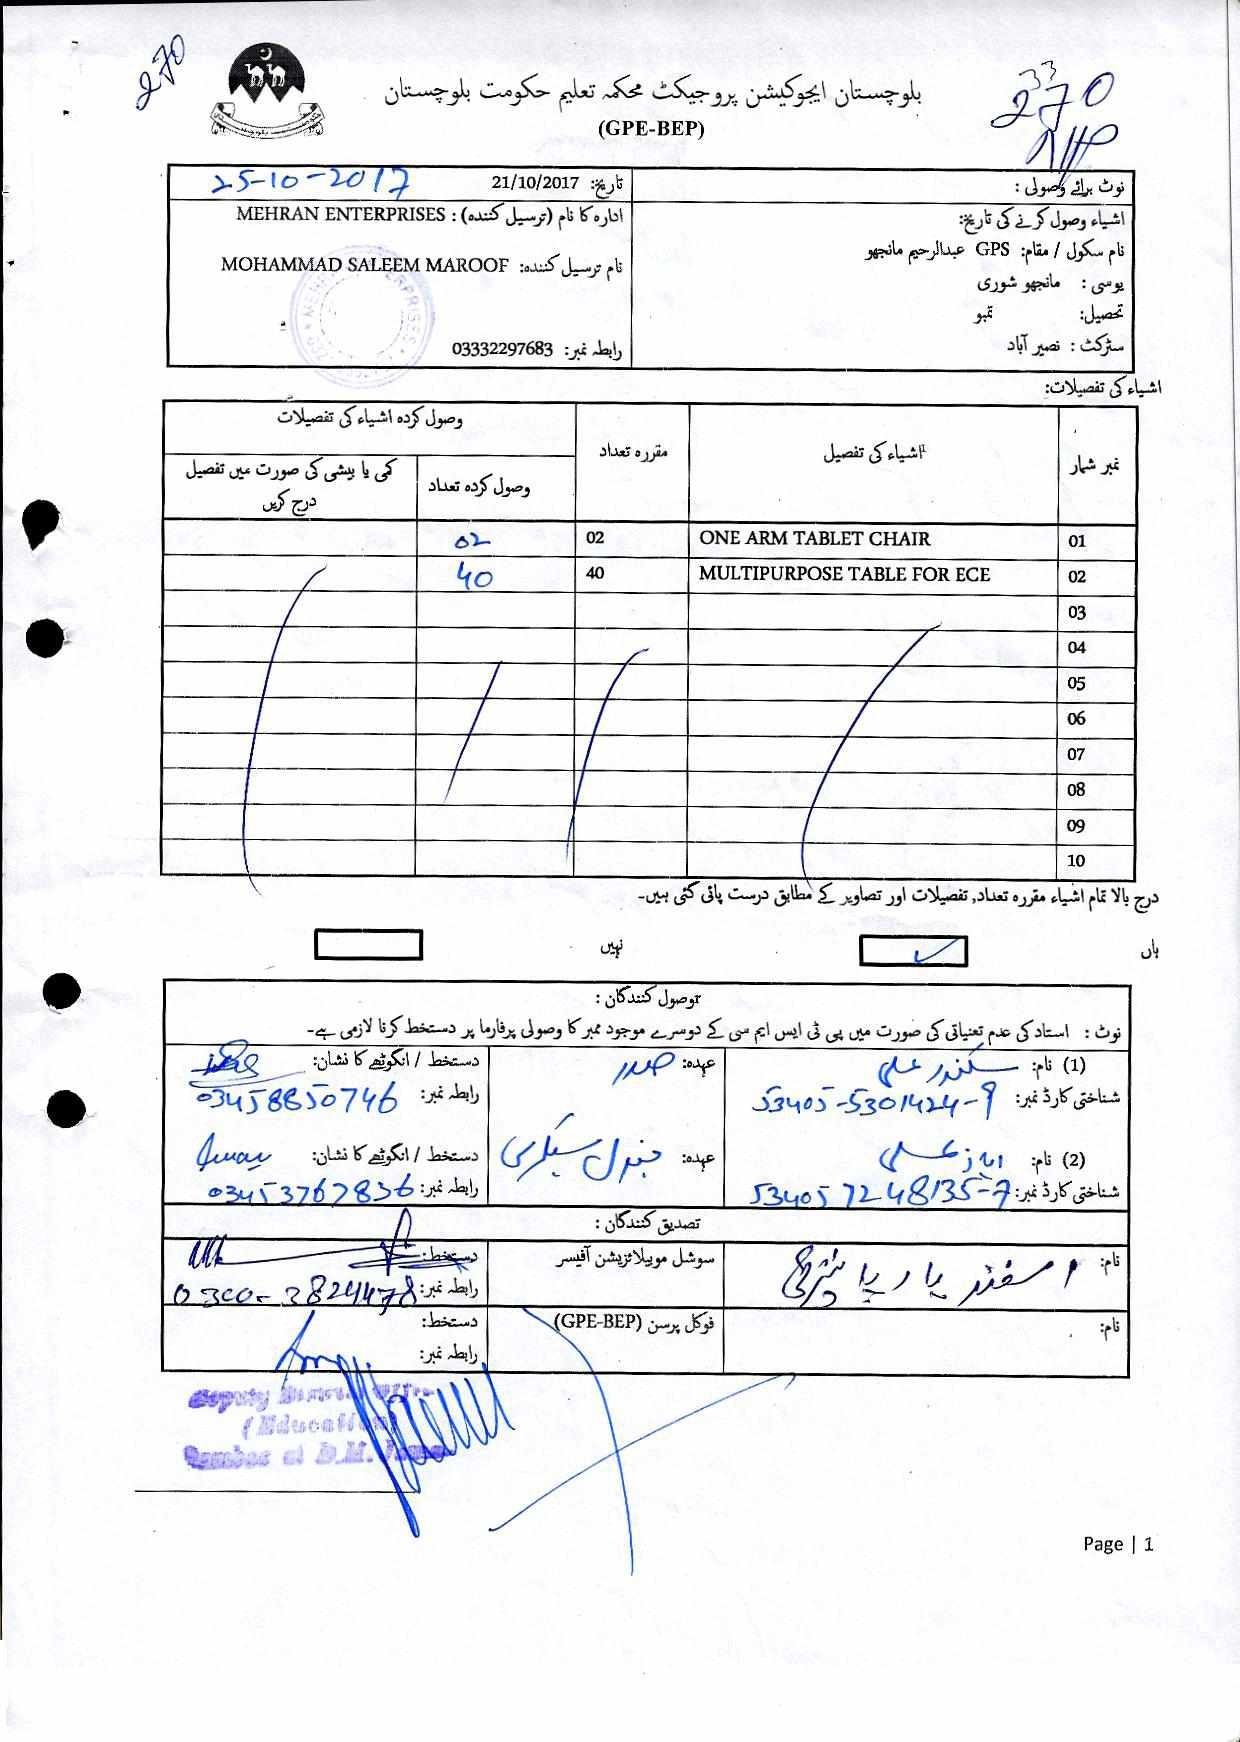 270
بلوچستان ایجوکیشن پروجیکٹ محکمہ تعلیم حکومت بلوچستان
(GPE-BEP)
33
270
نوٹ برائے وصولی :
تاریخ: 21/10/2017 25-10-2017
اشیاء وصول کرنے کی تاریخ:
نام سکول / مقام: GPS عبدالرحیم مانجھو
یوسی : مانجھو شوری
تحصیل: تمبو
سٹرکٹ : نصیر آباد
ادارہ کا نام (ترسیل کنندہ) : MEHRAN ENTERPRISES
نام ترسیل کنندہ: MOHAMMAD SALEEM MAROOF
رابطہ نمبر: 03332297683
اشیاء کی تفصیلات:
نمبر شمار اشیاء کی تفصیل مقررہ تعداد وصول کردہ اشیاء کی تفصیلات
وصول کردہ تعداد کمی یا بیشی کی صورت میں تفصیل درج کریں
01 ONE ARM TABLET CHAIR 02 02
02 MULTIPURPOSE TABLE FOR ECE 40 40
03
04
05
06
07
08
09
10
درج بالا تمام اشیاء مقررہ تعداد, تفصیلات اور تصاویر کے مطابق درست پائی گئی ہیں۔
ہاں ✓ نہیں
وصول کنندگان :
نوٹ : استاد کی عدم تعنیاتی کی صورت میں پی ٹی ایس ایم سی کے دوسرے موجود ممبر کا وصولی پرفارما پر دستخط کرنا لازمی ہے۔
(1) نام: سکندر علی عہدہ: صدر دستخط / انگوٹھے کا نشان:
شناختی کارڈ نمبر: 53405-5301424-9 رابطہ نمبر: 03458850746
(2) نام: ایاز علی عہدہ: جنرل سیکرٹری دستخط / انگوٹھے کا نشان:
شناختی کارڈ نمبر: 53405 7248135-7 رابطہ نمبر: 03453767836
تصدیق کنندگان :
نام: اسفند یار سوشل موبیلائزیشن آفیسر دستخط:
رابطہ نمبر: 0300-3824478
نام: فوکل پرسن (GPE-BEP) دستخط:
رابطہ نمبر:
Deputy
(Education)
Page | 1